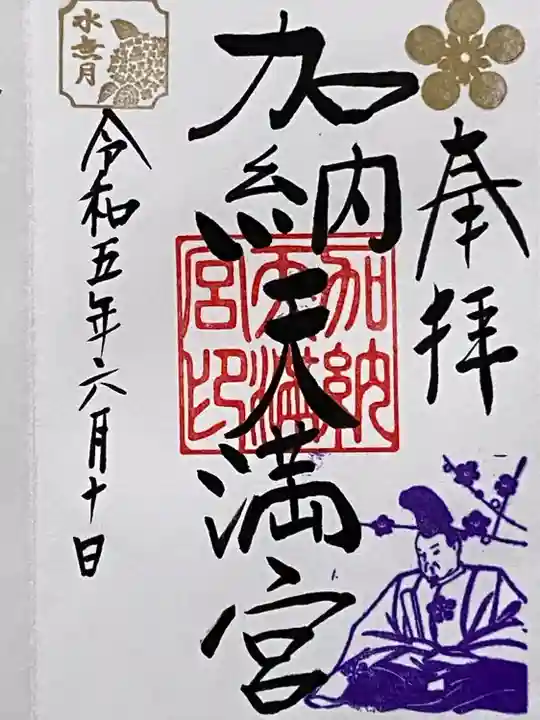 奉拝
加納天満宮
加納
天満
宮印
水無月
令和五年六月十日